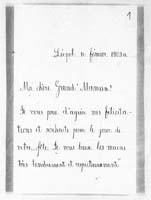 1
Liépol. 11 février 1903a
Ma chère Grand' Maman!
Je vous prie d'agréer mes félicita-
tions et souhaits pour le jour de
votre fête. Je vous baise les mains
très tendrement et respectueusement